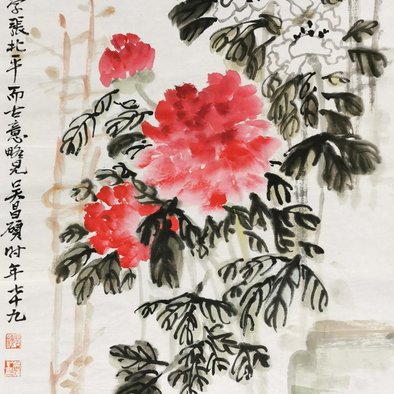 学張北平而古意略見吳昌碩時年七十九